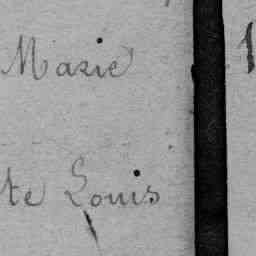 Marie
te Louis